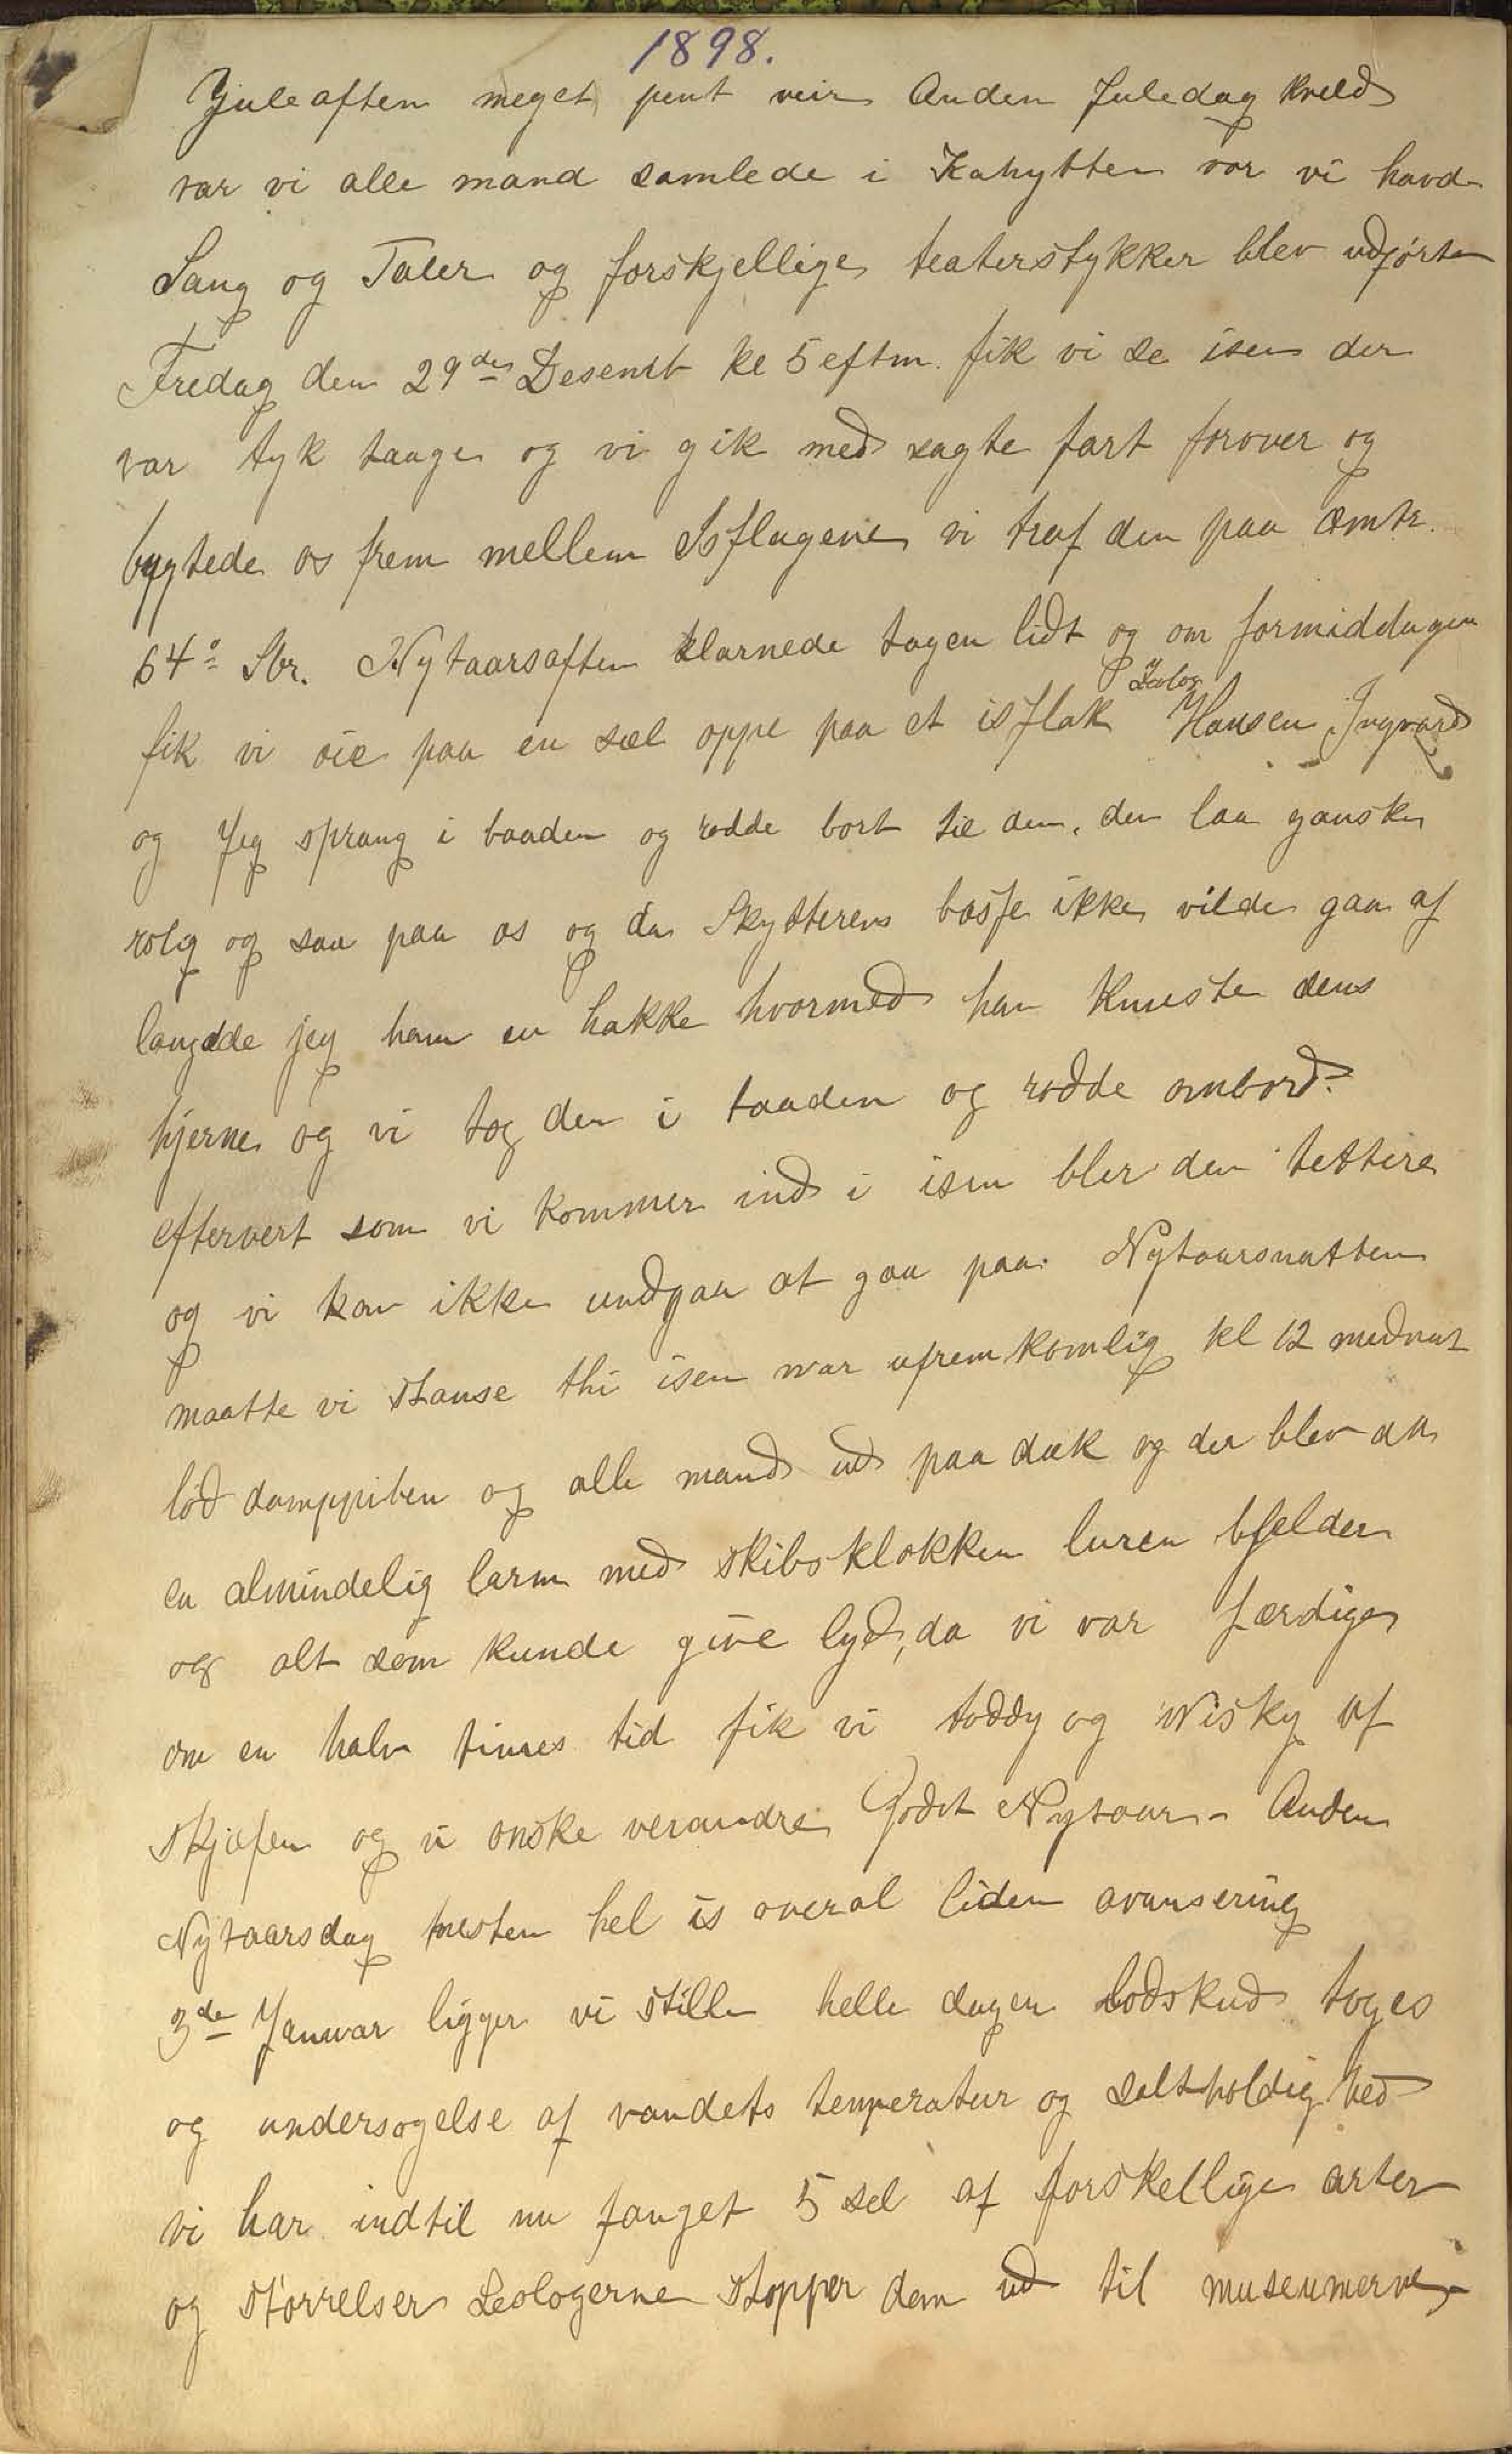 1898.
Juleaften meget pent veir Anden Juledag kveld
var vi alle mand samlede i Kahytten vor vi havde
Sang og Taler og forskjellige teaterstykker blev udførte
Fredag den 29de Desembt kl 5 eftm. fik vi se isen der
var tyk taage og vi gik med sagte fart forover og
bygtede os frem mellem Isflagene vi traf den paa omtr.
64° Sbr. Nytaarsaften klarnede tagen lidt og om formiddagen
fik vi øie paa en sæl oppe paa et isflak Zeolog Hansen Ingvard
og Jeg sprang i baaden og rodde bort til den, den laa ganske
rolig og saa paa os og da Skytterens bøsse ikke vilde gaa af
langede jeg ham en hakke hvormed han knuste dens
hjerne og vi tog den i baaden og rodde ombord.
eftervert som vi kommer ind i isen bler den tettere
og vi kan ikke undgaa at gaa paa. Nytaarsnatten
maatte vi stanse thi isen var ufremkomlig kl 12 midnat
lød damppiben og alle mand ud paa dæk og der blev da
en almindelig larm med skibsklokken luren bjelder
og alt som kunde give lyd, da vi var færdige
om en halv times tid fik vi toddy og Wisky af
Skjefen og vi ønske verandre Godt Nytaar - Anden
Nytaarsdag nesten hel is overal liden avansering
3de Januar ligger vi stille helle dagen Lodskud toges
og undersøgelse af vandets temperatur og saltholdighed
vi har indtil nu fanget 5 sel af forskellige arter
og størrelser Zeologerne stopper dem ud til museumerne,